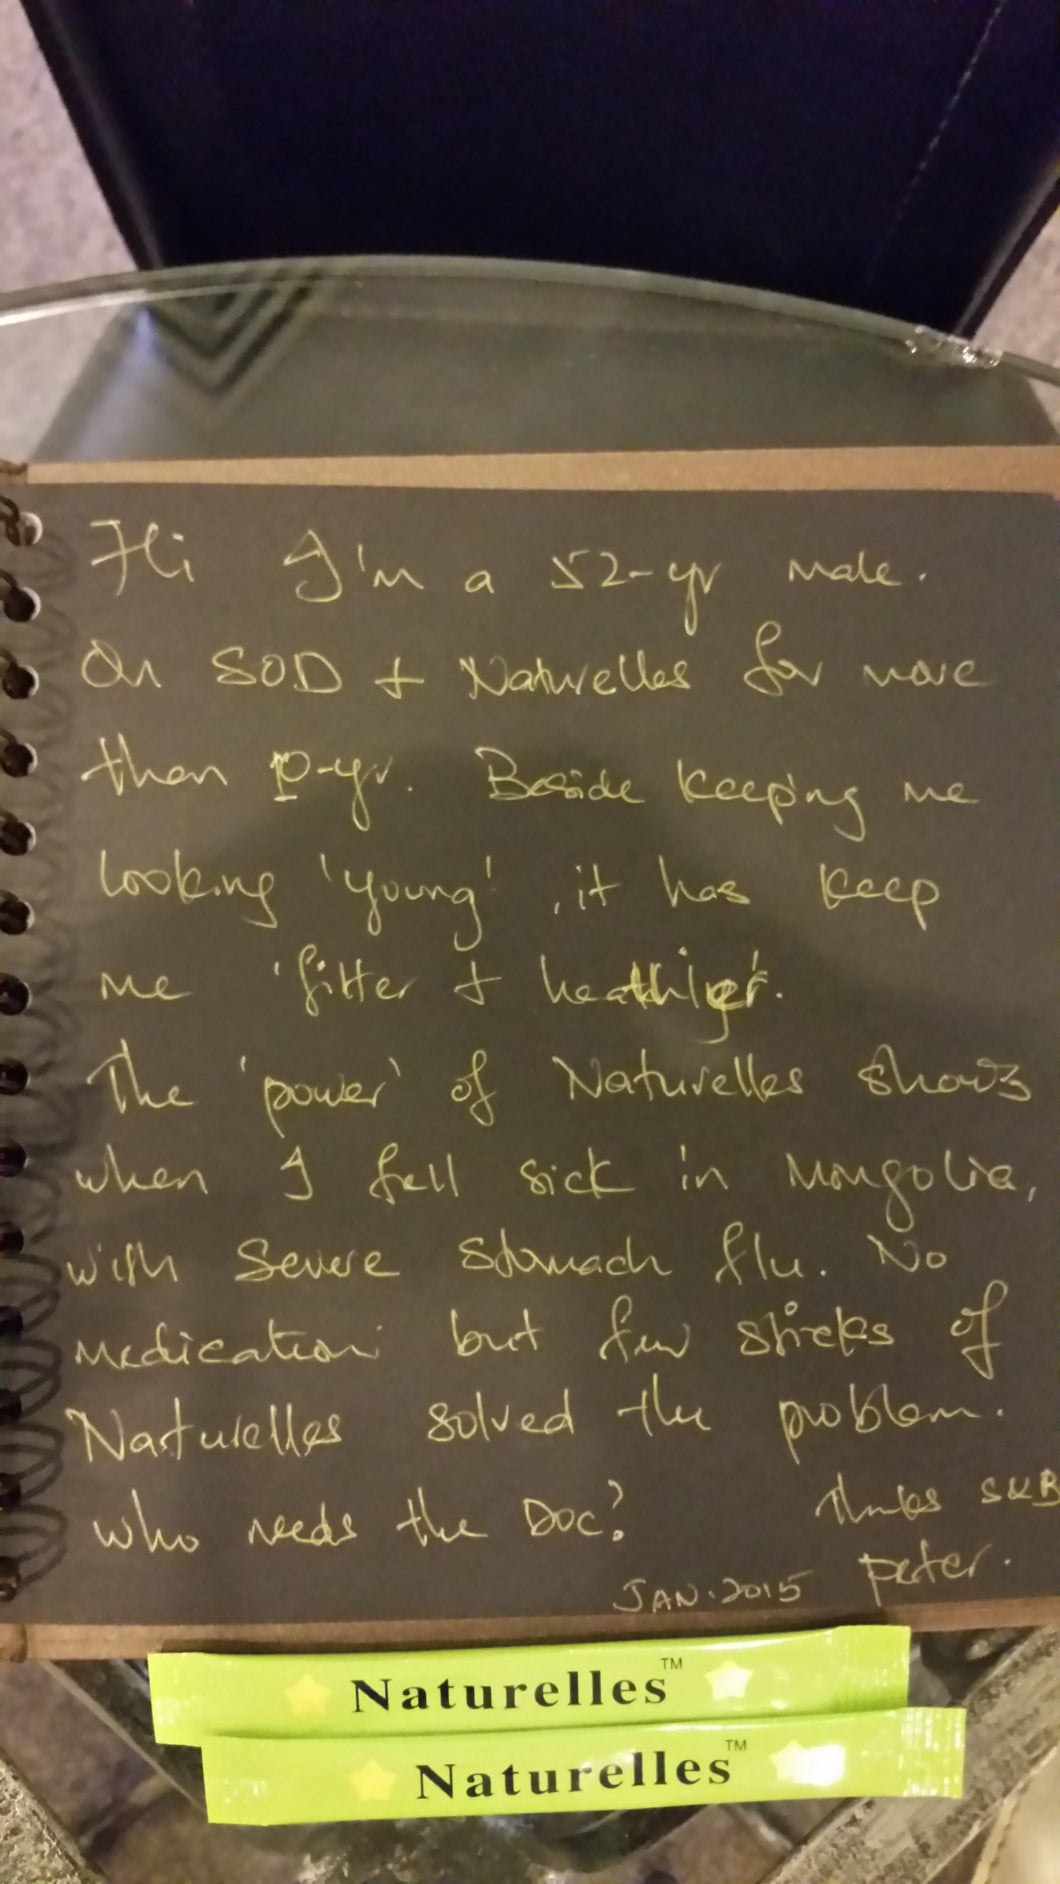 Hi I'm a 52-yr male.
On SOD + Naturelles for more
then 10-yr. Beside keeping me
looking 'young', it has keep
me 'fitter + heathier'.
The 'power' of Naturelles shows
when I fell sick in Mongolia,
with severe stomach flu. No
medication but few sticks of
Naturelles solved the problem.
Who needs the Doc?
Thnks SKB
Peter.
JAN.2015
Naturelles™
Naturelles™